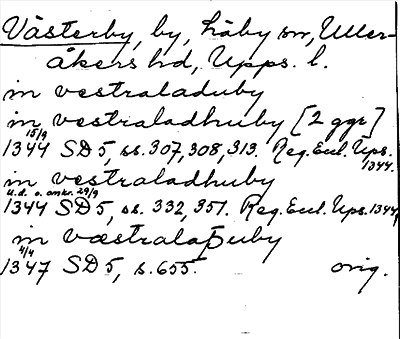 Västerby, by, Läby sn, Uller-
åkers hd, Upps. l.
in vestraladuby
in vestraladhuby [2 ggr]
15/9
1344 SD 5, ss. 307, 308, 313. Reg. Eccl. Ups.
1344.
in vestraladhuby
u.d. o. omkr. 29/9
1344 SD 5, ss. 332, 351. Reg. Eccl. Ups. 1344
in væstralaþuby
4/4
1347 SD 5, s. 655. orig.